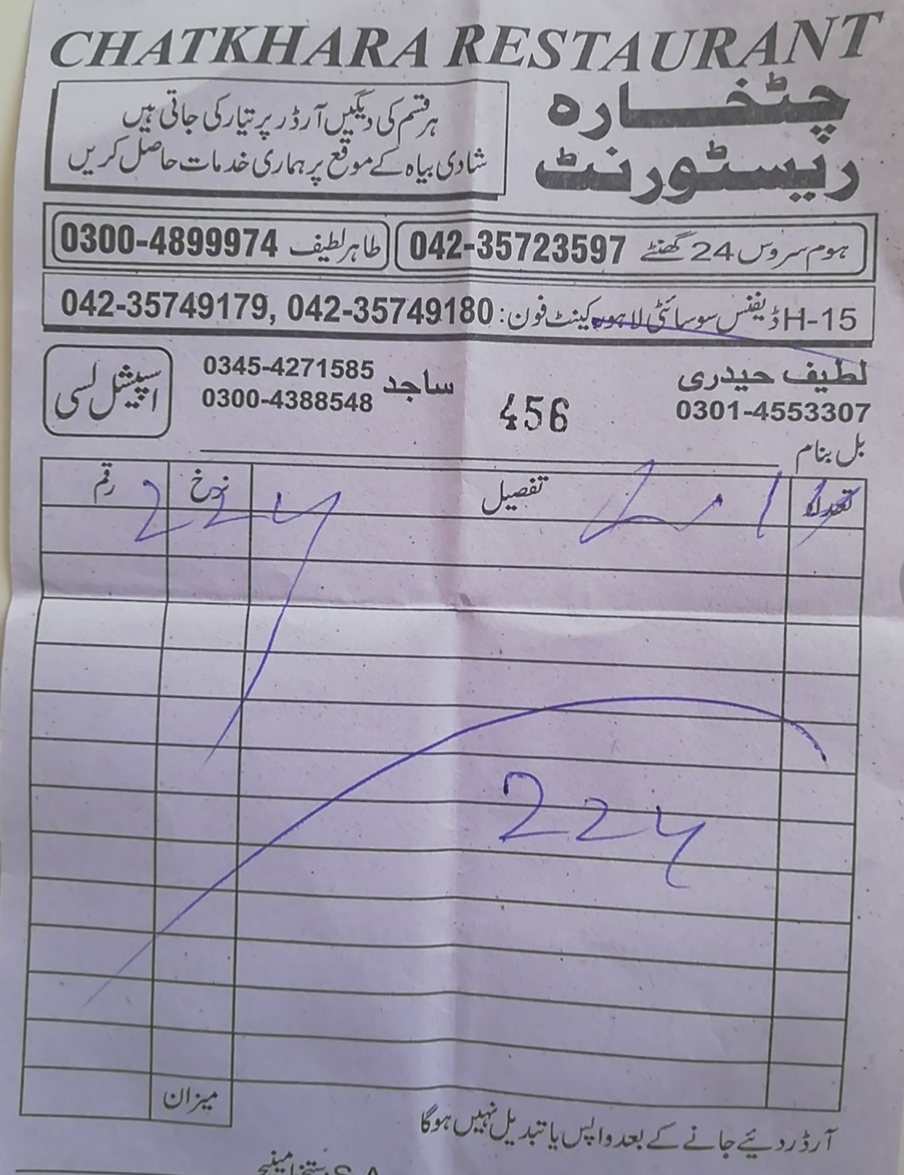 CHATKHARA RESTAURANT
چٹخارہ
ریسٹورنٹ
ہر قسم کی دیگیں آرڈر پر تیار کی جاتی ہیں
شادی بیاہ کے موقع پر ہماری خدمات حاصل کریں
ہوم سروس 24 گھنٹے 042-35723597
طاہر لطیف 0300-4899974
15-H ڈیفنس سوسائٹی لاہور کینٹ فون: 042-35749180, 042-35749179
لطیف حیدری
0301-4553307
456
ساجد 0345-4271585
0300-4388548
اسپیشل لسی
بل بنام
تعداد تفصیل نرخ رقم
224
224
میزان
آرڈر دئیے جانے کے بعد واپس یا تبدیل نہیں ہوگا